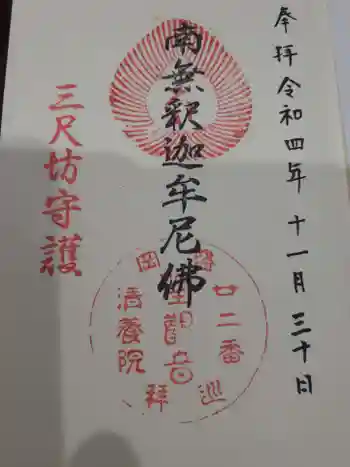 奉拝 令和四年 十一月 三十日
南無釈迦牟尼佛
三尺坊守護
廿二番
聖観音
清養院
巡
拝